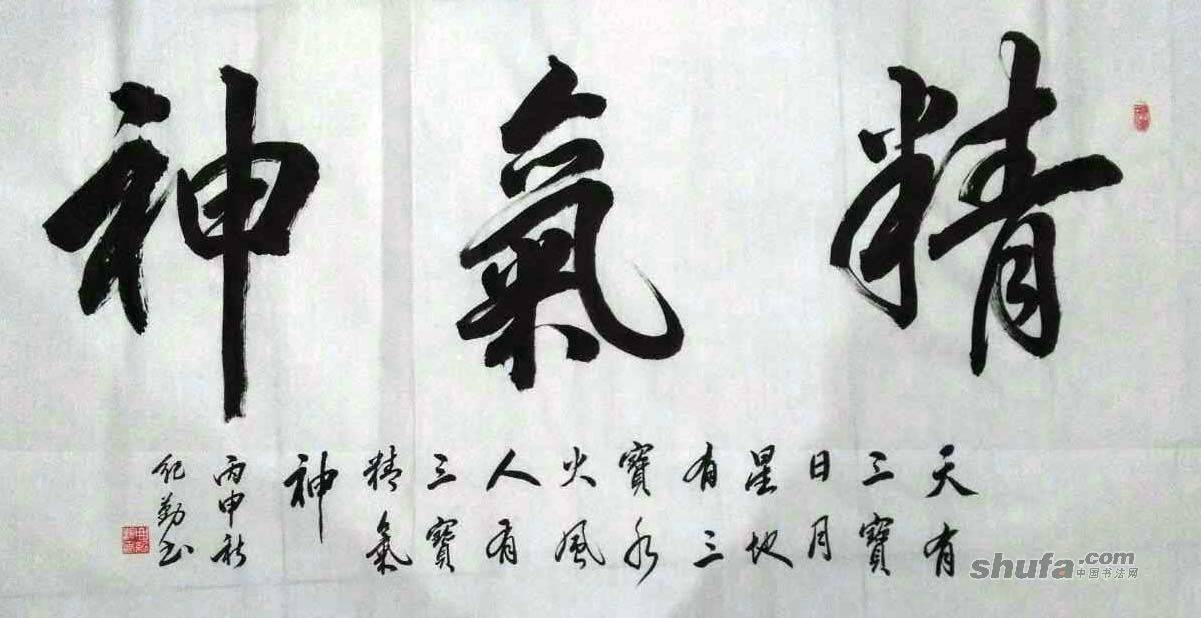 精氣神
天有
三寶
日月
星地
有三
寶水
火風
人有
三寶
精氣
神
丙申秋
纪勤书
shufa.com
中国书法网